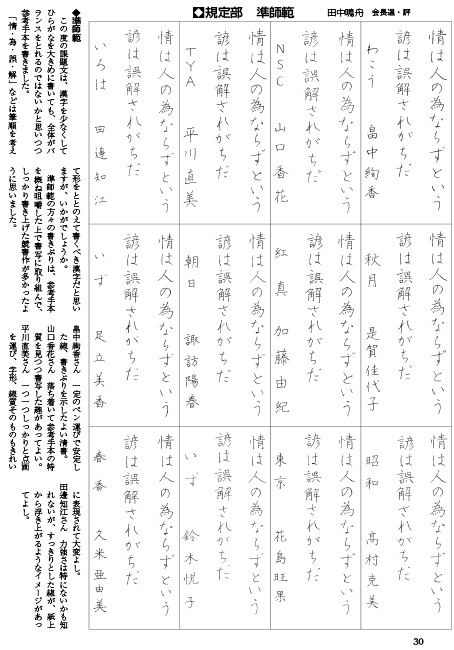 ◆規定部　準師範
田中鳴舟　会長選・評
情は人の為ならずという
諺は誤解されがちだ
わこう　畠中絢香
情は人の為ならずという
諺は誤解されがちだ
NSC　山口香花
情は人の為ならずという
諺は誤解されがちだ
TYA　平川直美
情は人の為ならずという
諺は誤解されがちだ
いろは　田邉知江
情は人の為ならずという
諺は誤解されがちだ
秋月　是賀佳代子
情は人の為ならずという
諺は誤解されがちだ
紅真　加藤由紀
情は人の為ならずという
諺は誤解されがちだ
朝日　諏訪陽春
情は人の為ならずという
諺は誤解されがちだ
いず　足立美香
情は人の為ならずという
諺は誤解されがちだ
昭和　髙村克美
情は人の為ならずという
諺は誤解されがちだ
東京　花島旺果
情は人の為ならずという
諺は誤解されがちだ
いず　鈴木悦子
情は人の為ならずという
諺は誤解されがちだ
春香　久米亜由美
◆準師範
この度の課題文は、漢字を少なくして
ひらがなを大きめに書いても、全体がバ
ランスをとれるのではないかと思いつつ
参考手本を書きました。
「情・為・誤・解」などは筆順を考え
て形をととのえて書くべき漢字だと思い
ますが、いかがでしょうか。
準師範の方々の書きぶりは、参考手本
を概ね咀嚼した上で書写に取り組んで、
しっかり書き上げた競書作が多かったよ
うに思いました。
畠中絢香さん　一定のペン運びで安定し
た線、書きぶりを示したよい清書。
山口香花さん　落ち着いて参考手本の特
質を見つつ書写した線があってよい。
平川直美さん　一つ一つしっかりと点画
を運び、字形、線質そのものもきれい
に表現されて大変よし。
田邉知江さん　力強さは特にないかも知
れないが、すっきりとした線が、紙上
から浮き上がるようなイメージがあっ
てよし。
30